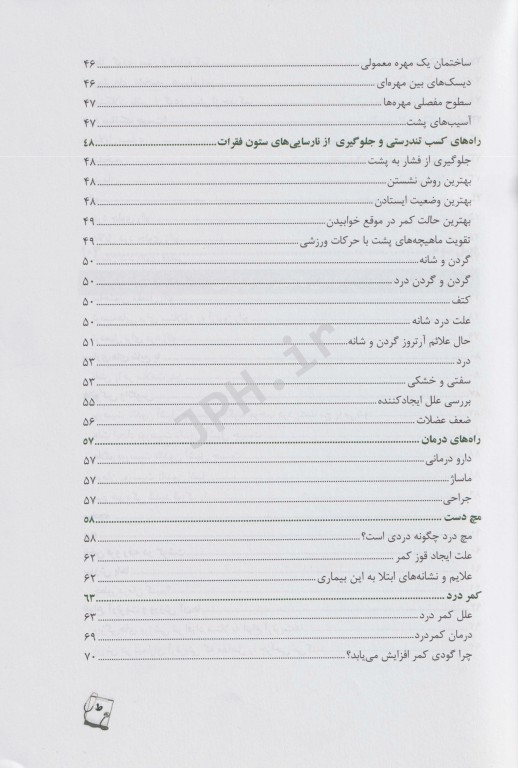 ساختمان یک مهره معمولی ۴۶
دیسک‌های بین مهره‌ای ۴۶
سطوح مفصلی مهره‌ها ۴۷
آسیب‌های پشت ۴۷
راه‌های کسب تندرستی و جلوگیری از نارسایی‌های ستون فقرات ۴۸
جلوگیری از فشار به پشت ۴۸
بهترین روش نشستن ۴۸
بهترین وضعیت ایستادن ۴۸
بهترین حالت کمر در موقع خوابیدن ۴۹
تقویت ماهیچه‌های پشت با حرکات ورزشی ۴۹
گردن و شانه ۵۰
گردن و گردن درد ۵۰
کتف ۵۰
علت درد شانه ۵۰
حال علائم آرتروز گردن و شانه ۵۱
درد ۵۳
سفتی و خشکی ۵۳
بررسی علل ایجادکننده ۵۵
ضعف عضلات ۵۶
راه‌های درمان ۵۷
دارو درمانی ۵۷
ماساژ ۵۷
جراحی ۵۷
مچ دست ۵۸
مچ درد چگونه دردی است؟ ۵۸
علت ایجاد قوز کمر ۶۲
علایم و نشانه‌های ابتلا به این بیماری ۶۲
کمر درد ۶۳
علل کمر درد ۶۳
درمان کمردرد ۶۹
چرا گودی کمر افزایش می‌یابد؟ ۷۰
ط
JPH.ir